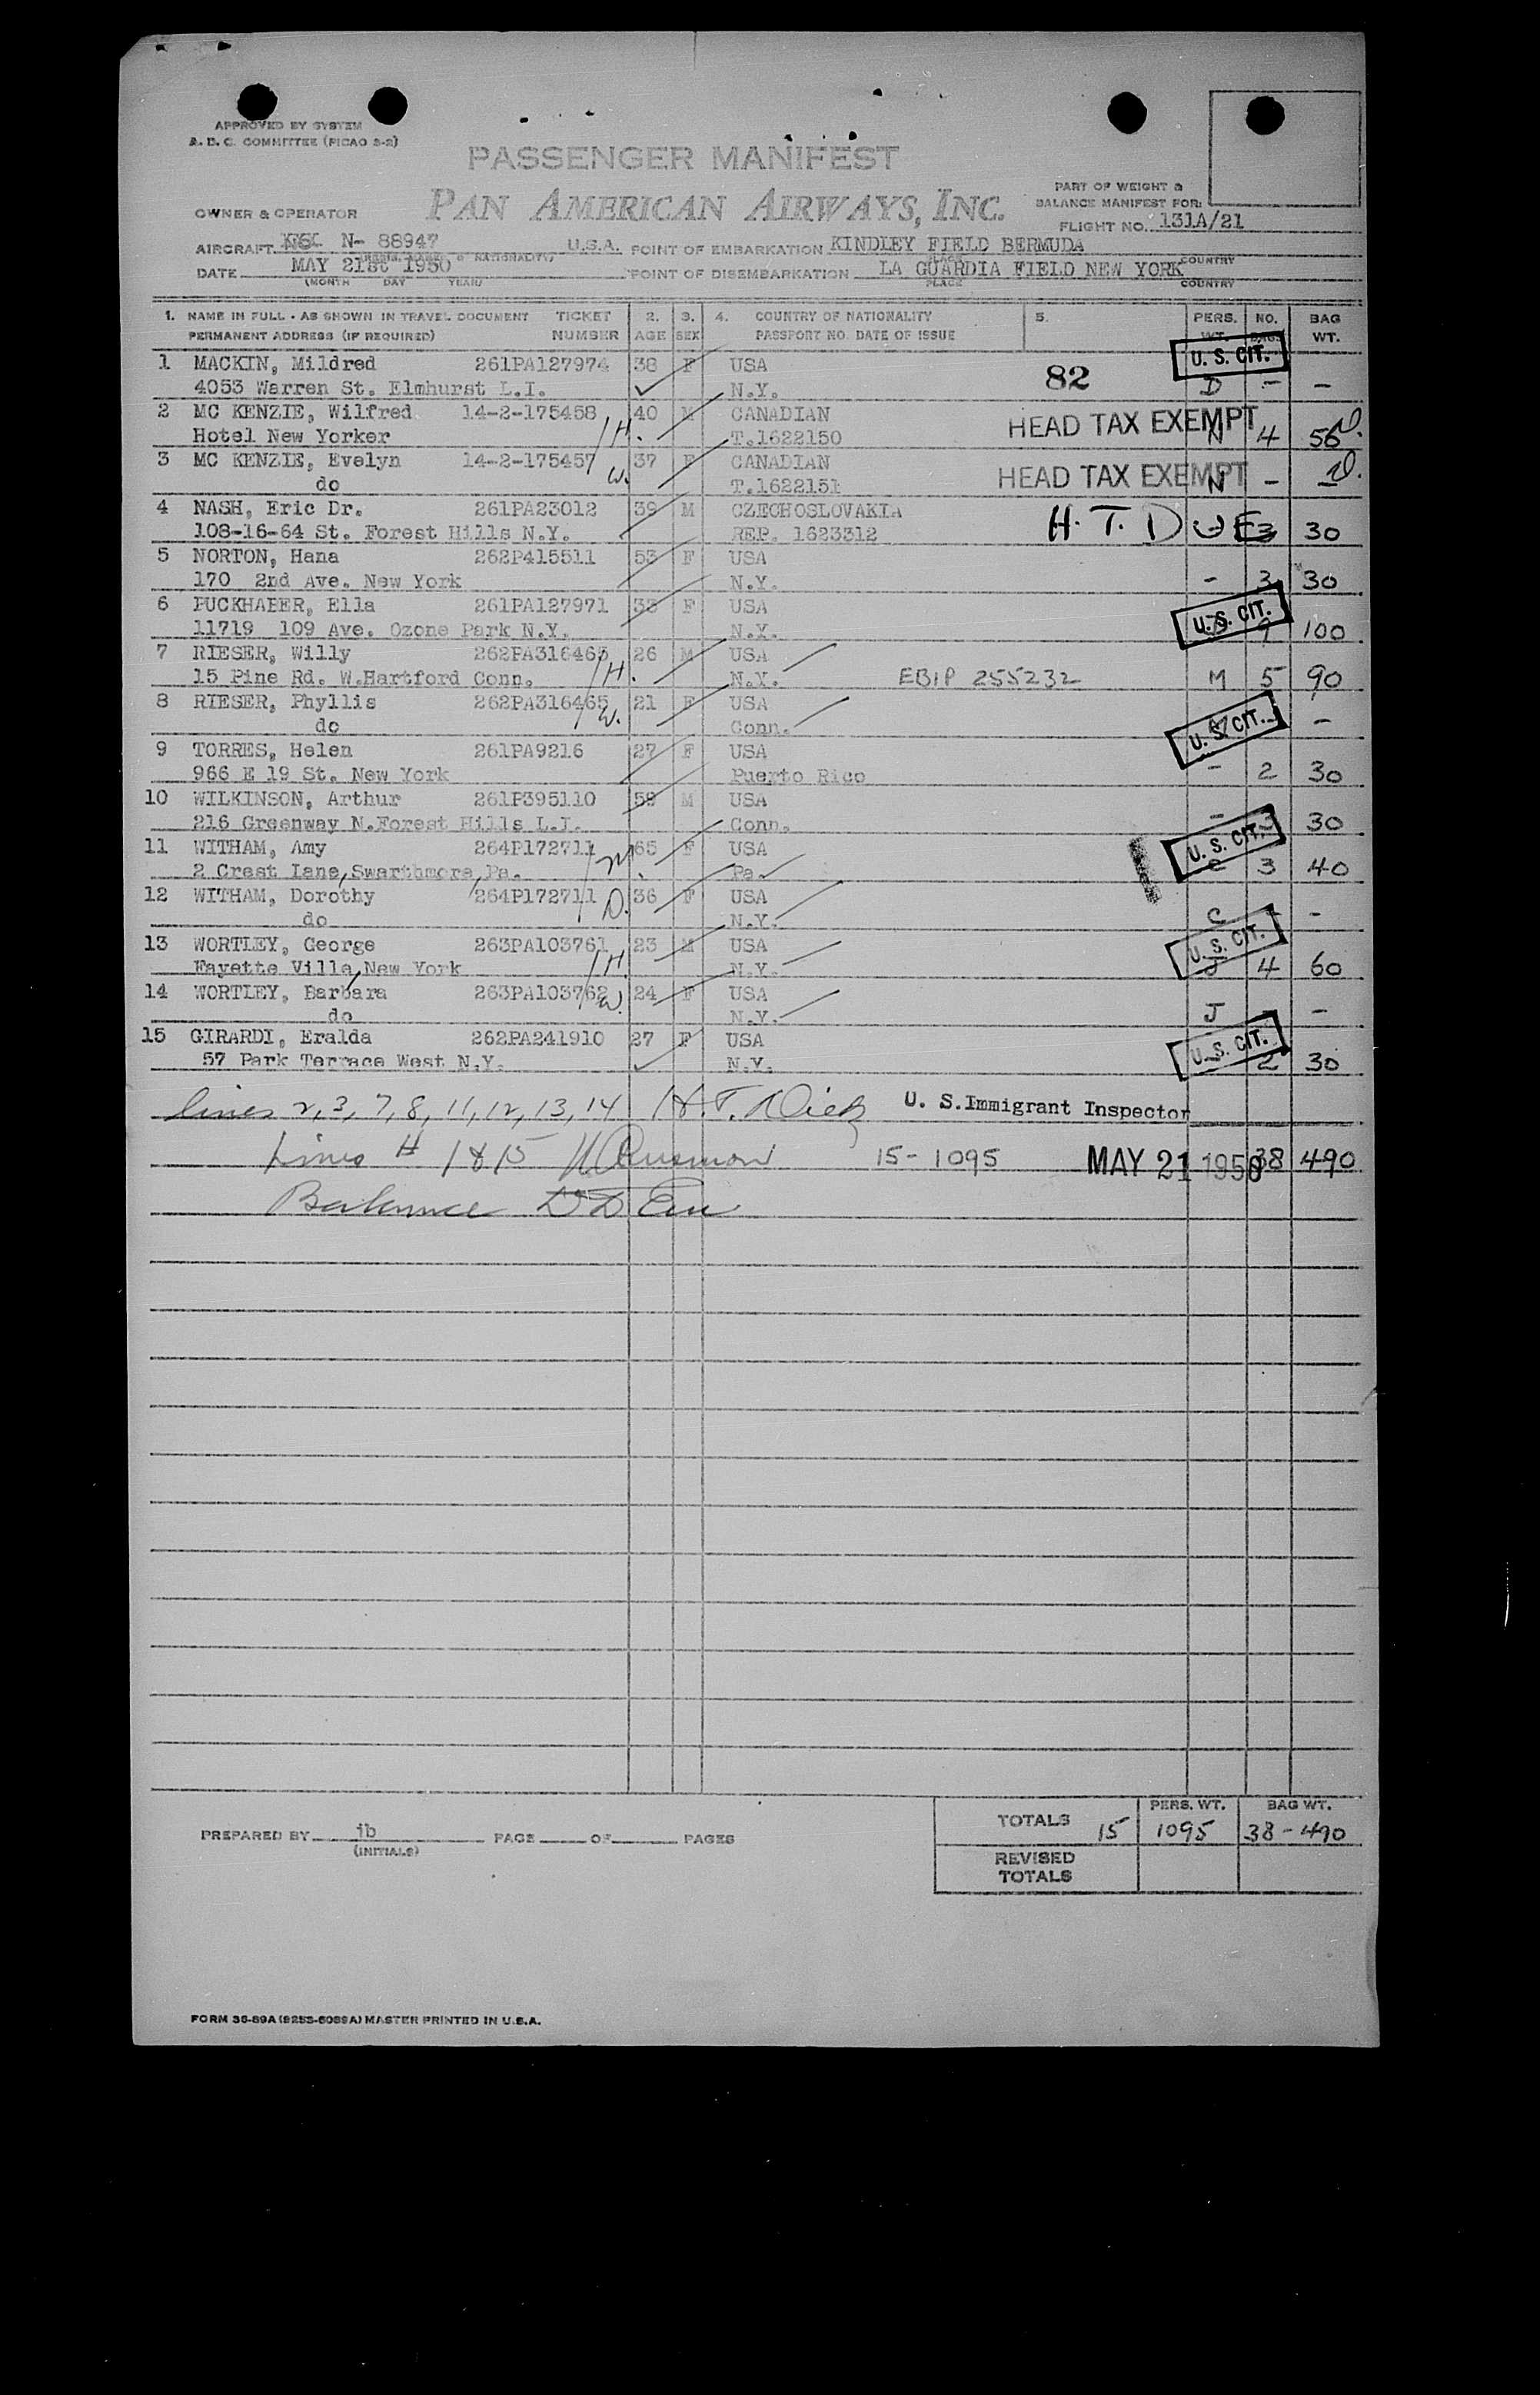 APPROVED BY SYSTEM
A. D. C. COMMITTEE (PICAO 2-2)
PASSENGER MANIFEST
PAN AMERICAN AIRWAYS, INC.
PART OF WEIGHT &
BALANCE MANIFEST FOR:
FLIGHT NO. 131A/21
OWNER & OPERATOR
AIRCRAFT NC N- 88947 U.S.A. POINT OF EMBARKATION KINDLEY FIELD BERMUDA
NATIONALITY) PLACE COUNTRY
DATE MAY 21st 1950 POINT OF DISEMBARKATION LA GUARDIA FIELD NEW YORK
(MONTH DAY YEAR) PLACE COUNTRY
1. NAME IN FULL - AS SHOWN IN TRAVEL DOCUMENT TICKET 2. 3. 4. COUNTRY OF NATIONALITY 5. PERS. NO. BAG
PERMANENT ADDRESS (IF REQUIRED) NUMBER AGE SEX PASSPORT NO. DATE OF ISSUE WT. BAG. WT.
1 MACKIN, Mildred 261PA127974 38 F USA 82 U. S. CIT.
4053 Warren St. Elmhurst L.I. N.Y. D - -
2 MC KENZIE, Wilfred 14-2-175458 40 M CANADIAN HEAD TAX EXEMPT
Hotel New Yorker H. T.1622150 N 4 56
3 MC KENZIE, Evelyn 14-2-175457 37 F CANADIAN HEAD TAX EXEMPT
do W. T.1622151 N -
4 NASH, Eric Dr. 261PA23012 39 M CZECHOSLOVAKIA H. T. DUE
108-16-64 St. Forest Hills N.Y. REP. 1623312 3 30
5 NORTON, Hana 262P415511 53 F USA
170 2nd Ave. New York N.Y. - 3 30
6 PUCKHABER, Ella 261PA127971 33 F USA U. S. CIT.
11719 109 Ave. Ozone Park N.Y. N.Y. 9 100
7 RIESER, Willy 262PA316465 26 M USA
15 Pine Rd. W.Hartford Conn. H. N.Y. EBIP 255232 M 5 90
8 RIESER, Phyllis 262PA316465 21 F USA U. S. CIT.
do W. Conn. -
9 TORRES, Helen 261PA9216 27 F USA
966 E 19 St. New York Puerto Rico - 2 30
10 WILKINSON, Arthur 261P395110 59 M USA
216 Greenway N.Forest Hills L.I. Conn. - 3 30
11 WITHAM, Amy 264P172711 65 F USA U. S. CIT.
2 Crest Lane, Swarthmore, Pa. M. Pa. C 3 40
12 WITHAM, Dorothy 264P172711 36 F USA
do D. N.Y. C -
13 WORTLEY, George 263PA103761 23 M USA U. S. CIT.
Fayette Ville, New York H. N.Y. J 4 60
14 WORTLEY, Barbara 263PA103762 24 F USA
do W. N.Y. J -
15 GIRARDI, Eralda 262PA241910 27 F USA U. S. CIT.
57 Park Terrace West N.Y. N.Y. 2 30
lines 2, 3, 7, 8, 11, 12, 13, 14 H. T. U. S. Immigrant Inspector
Lines # 1 & 15 15- 1095 MAY 21 1950 38 490
Balance
TOTALS 15 PERS. WT. 1095 BAG WT. 38-490
PREPARED BY ib PAGE OF PAGES
(INITIALS)
REVISED
TOTALS
FORM 36-89A (9253-6089A) MASTER PRINTED IN U.S.A.